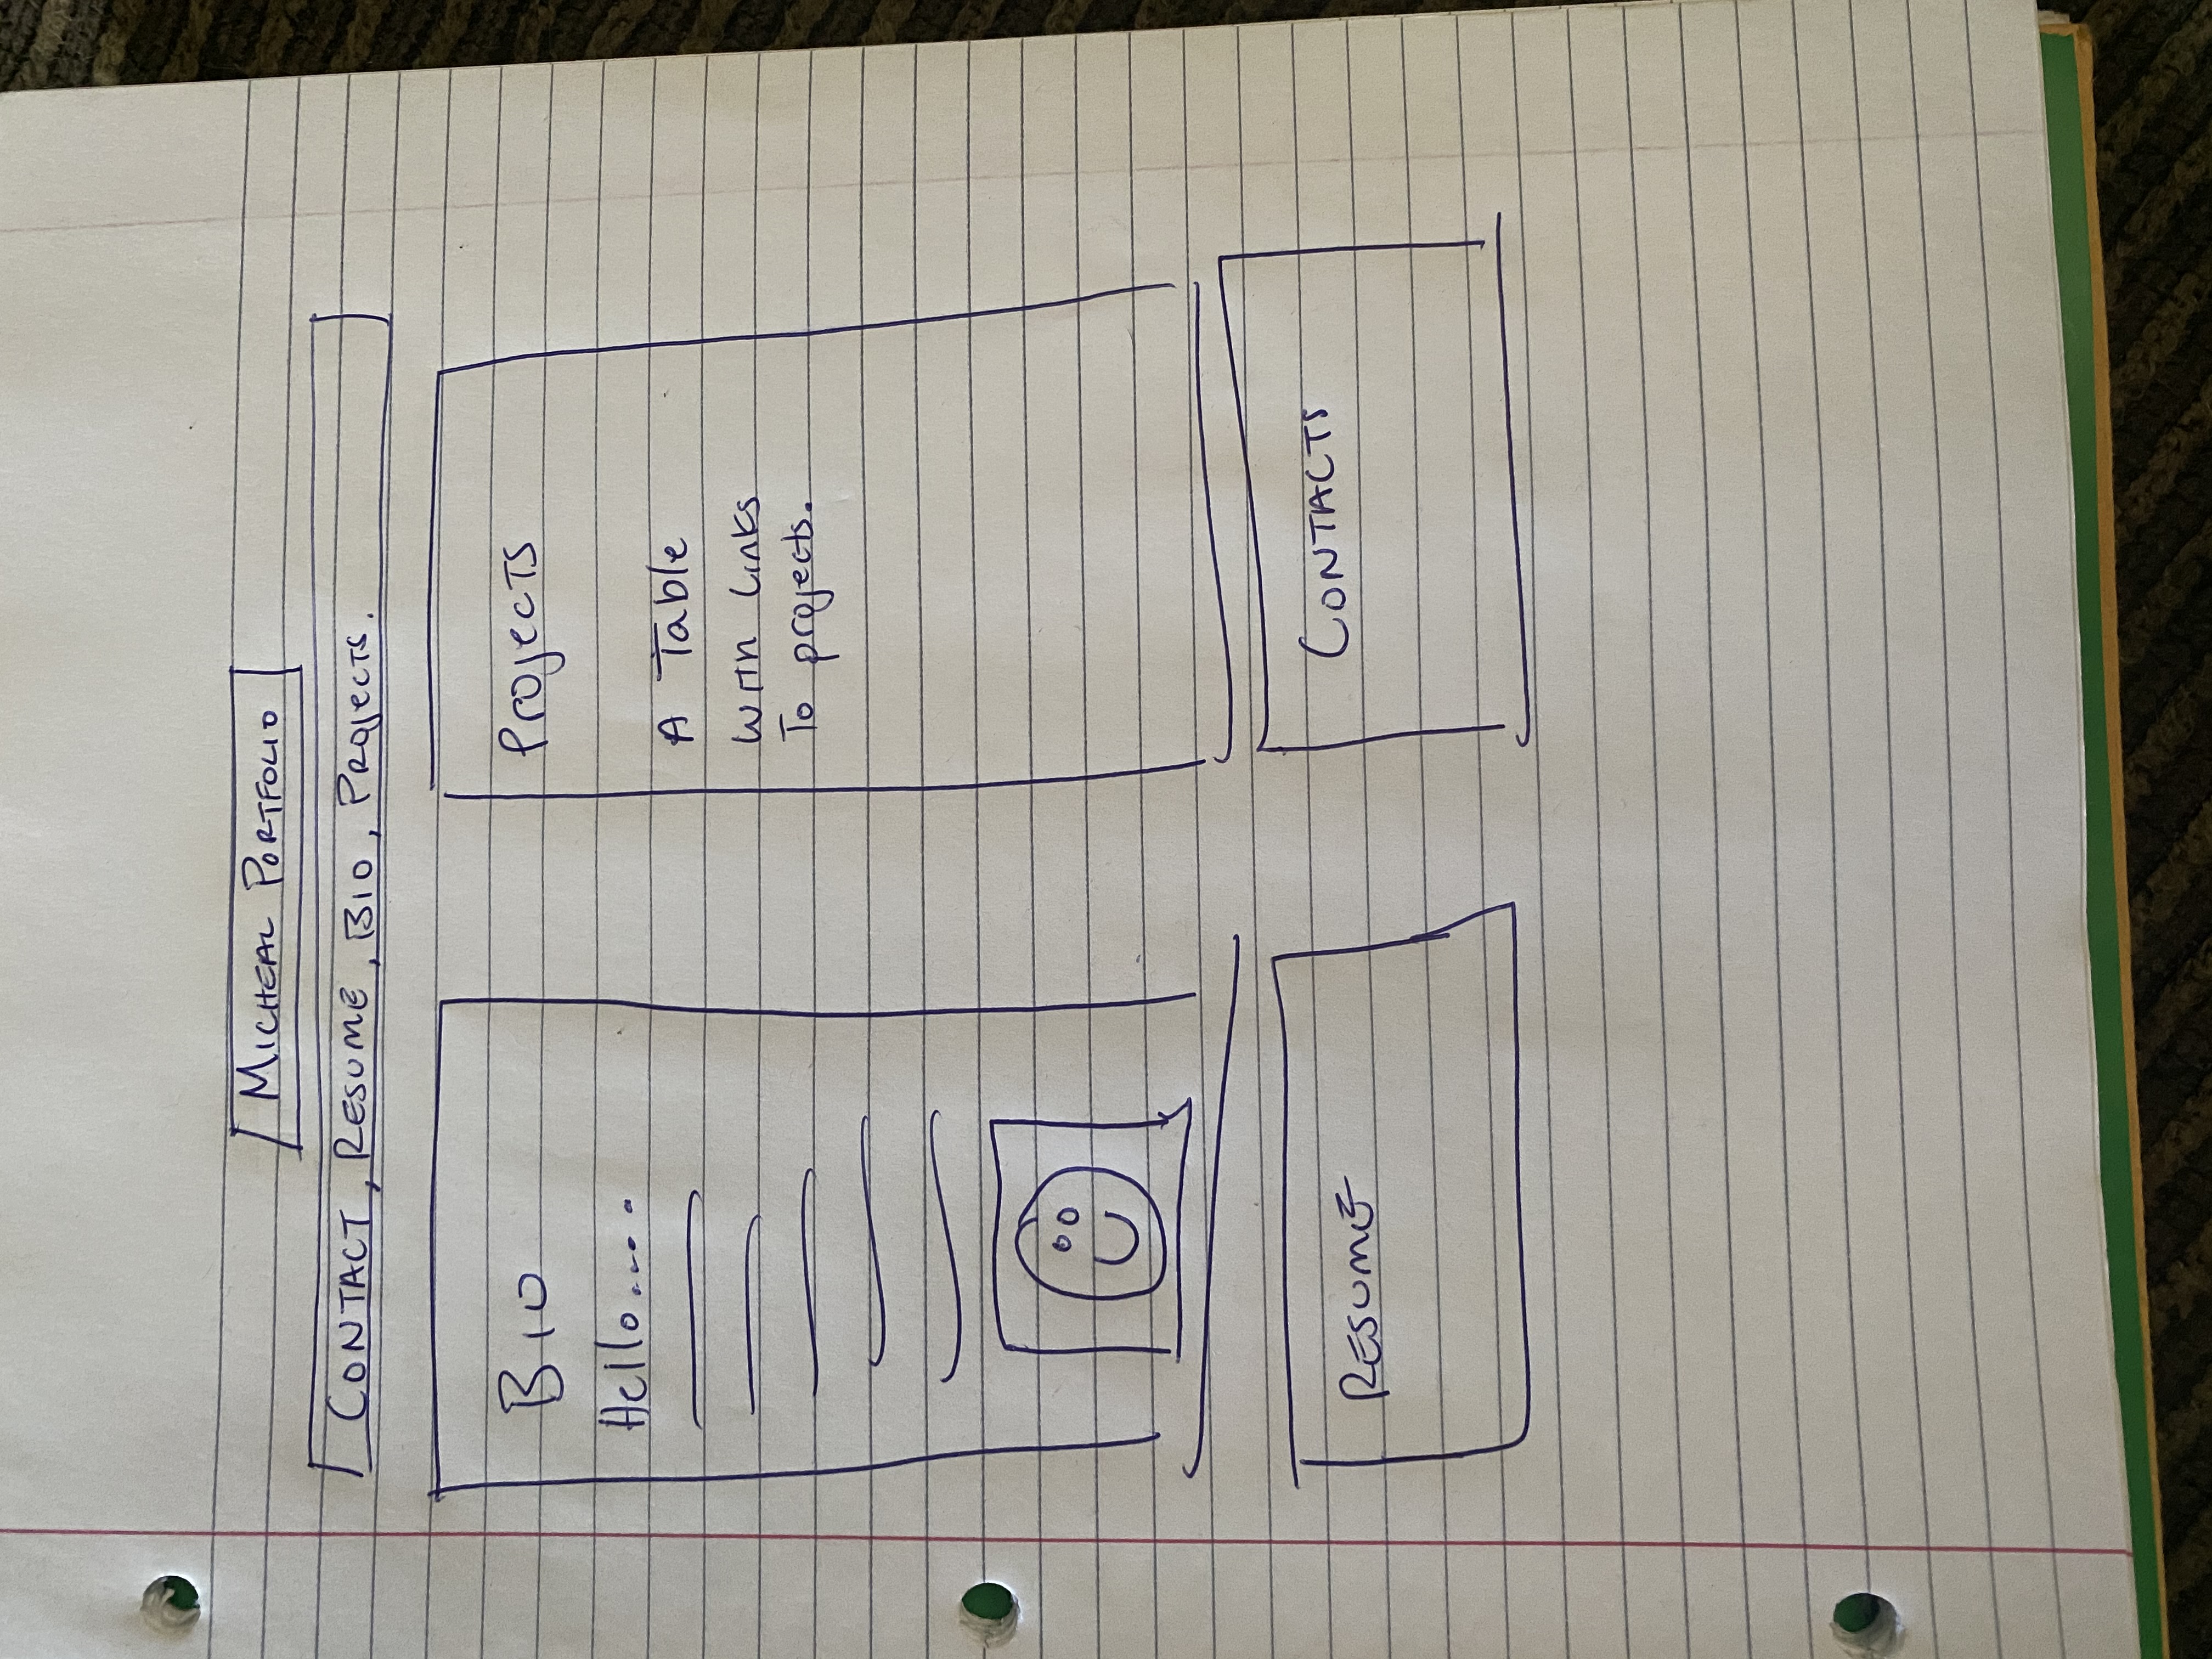 MICHEAL PORTFOLIO
CONTACT, RESUME, BIO, PROjECTS.
BIO
Hello.....
PROjECTS
A Table
WITH LINKS
To projects.
RESUME
CONTACTS